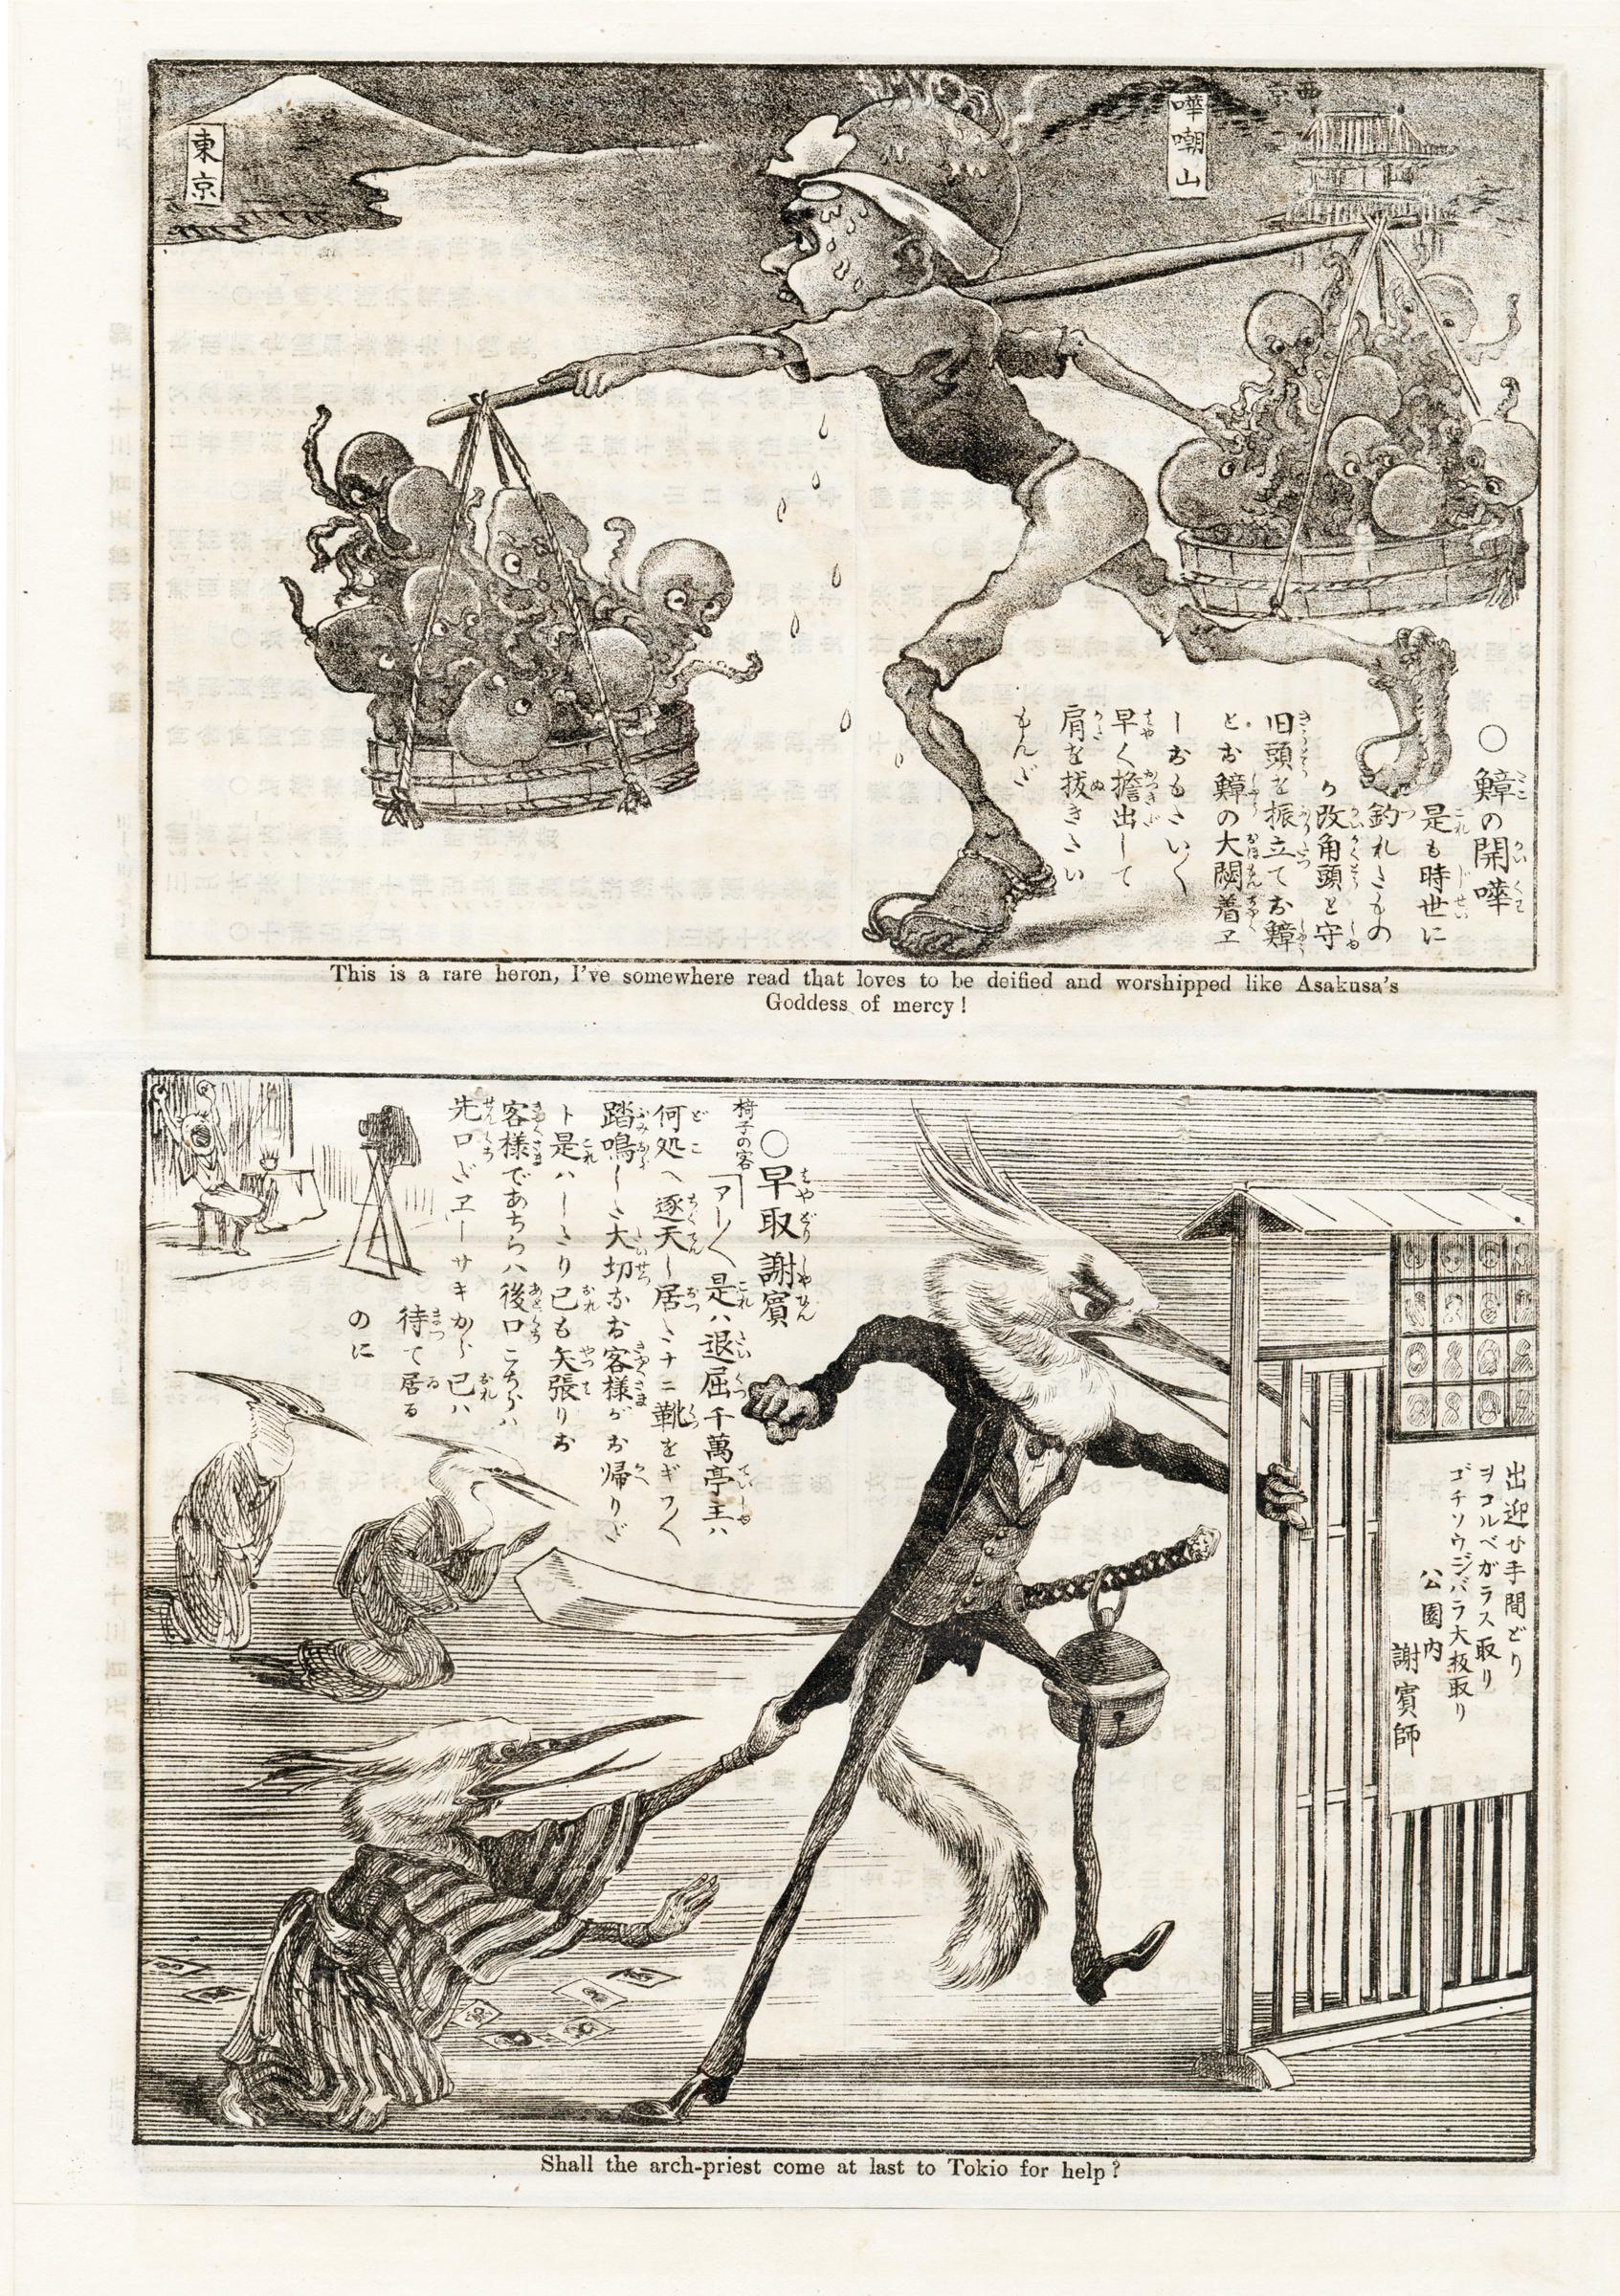 東京
嘩嘲山
西京
是も時世に
釣れさもの
改角頭と守
旧頭を振立てお鱆
とお鱆の大悶着ヱ
しおもさい〱
早く擔出して
肩を抜きさい
もんだ
This is a rare heron, I've somewhere read that loves to be deified and worshipped like Asakusa's
Goddess of mercy!
○早取謝賓
椅子の客
「アー〱是ハ退屈千萬亭主ハ
何処へ逐天し居つさナニ靴をギウ〱
踏鳴しさ大切なお客様がお帰りだ
ト是ハしさり已も矢張りお
客様であちらハ後口こちらハ
先口だヱーサキから已ハ
待て居る
のに
出迎ひ手間どり
ヲコルベガラス取り
ゴチソウジバラ大板取り
公園内
謝賓師
Shall the arch-priest come at last to Tokio for help?